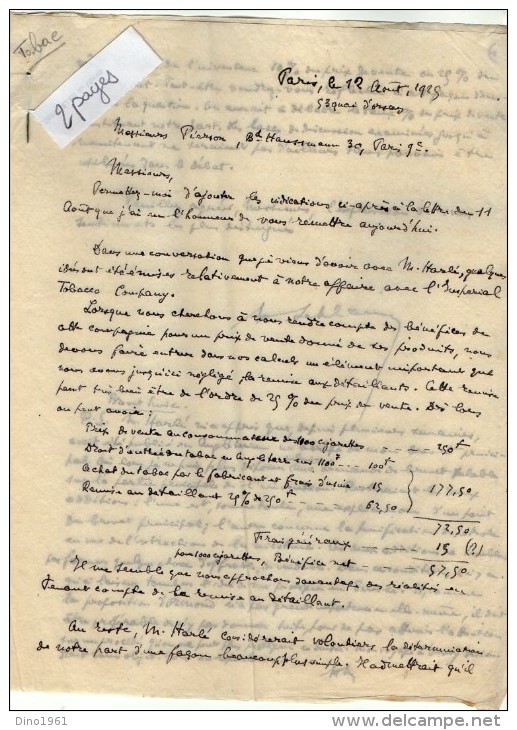 Tabac
2 pages
Paris, le 12 Août, 1925
53 quai d'orsay
Messieurs Pierson, Bd Haussmann 30, Paris 9e.
Messieurs,
Permettez-moi d'ajouter les indications ci-après à la lettre du 11
Août que j'ai eu l'honneur de vous remettre aujourd'hui.
Dans une conversation que je viens d'avoir avec M. Harlé, quelques
idées ont été émises relativement à notre affaire avec l'Imperial
Tobacco Company.
Lorsque nous cherchons à nous rendre compte des bénéfices de
cette compagnie pour un prix de vente donné de ses produits, nous
devons faire entrer dans nos calculs un élément important que
nous avons jusqu'ici négligé, la remise aux détaillants. Cette remise
peut très bien être de l'ordre de 25 % du prix de vente. Dès lors
on peut avoir:
Prix de vente au consommateur des 1000 cigarettes - - - - 250f
Droit d'entrée du tabac en Angleterre sur 1100g - - - 100f
Achat du tabac par le fabricant et frais d'usine 15
177,50
Remise au détaillant 25% de 250f 62,50
72,50
Frais généraux - - - - 15 (?)
pour 1000 cigarettes, Bénéfice net - - - - 57,50
Il me semble que nous approchons davantage des réalités en
tenant compte de la remise au détaillant.
Au reste, M. Harlé considérerait volontiers la détermination
de notre part d'une façon beaucoup plus simple. Il admettrait qu'il
Dino1961